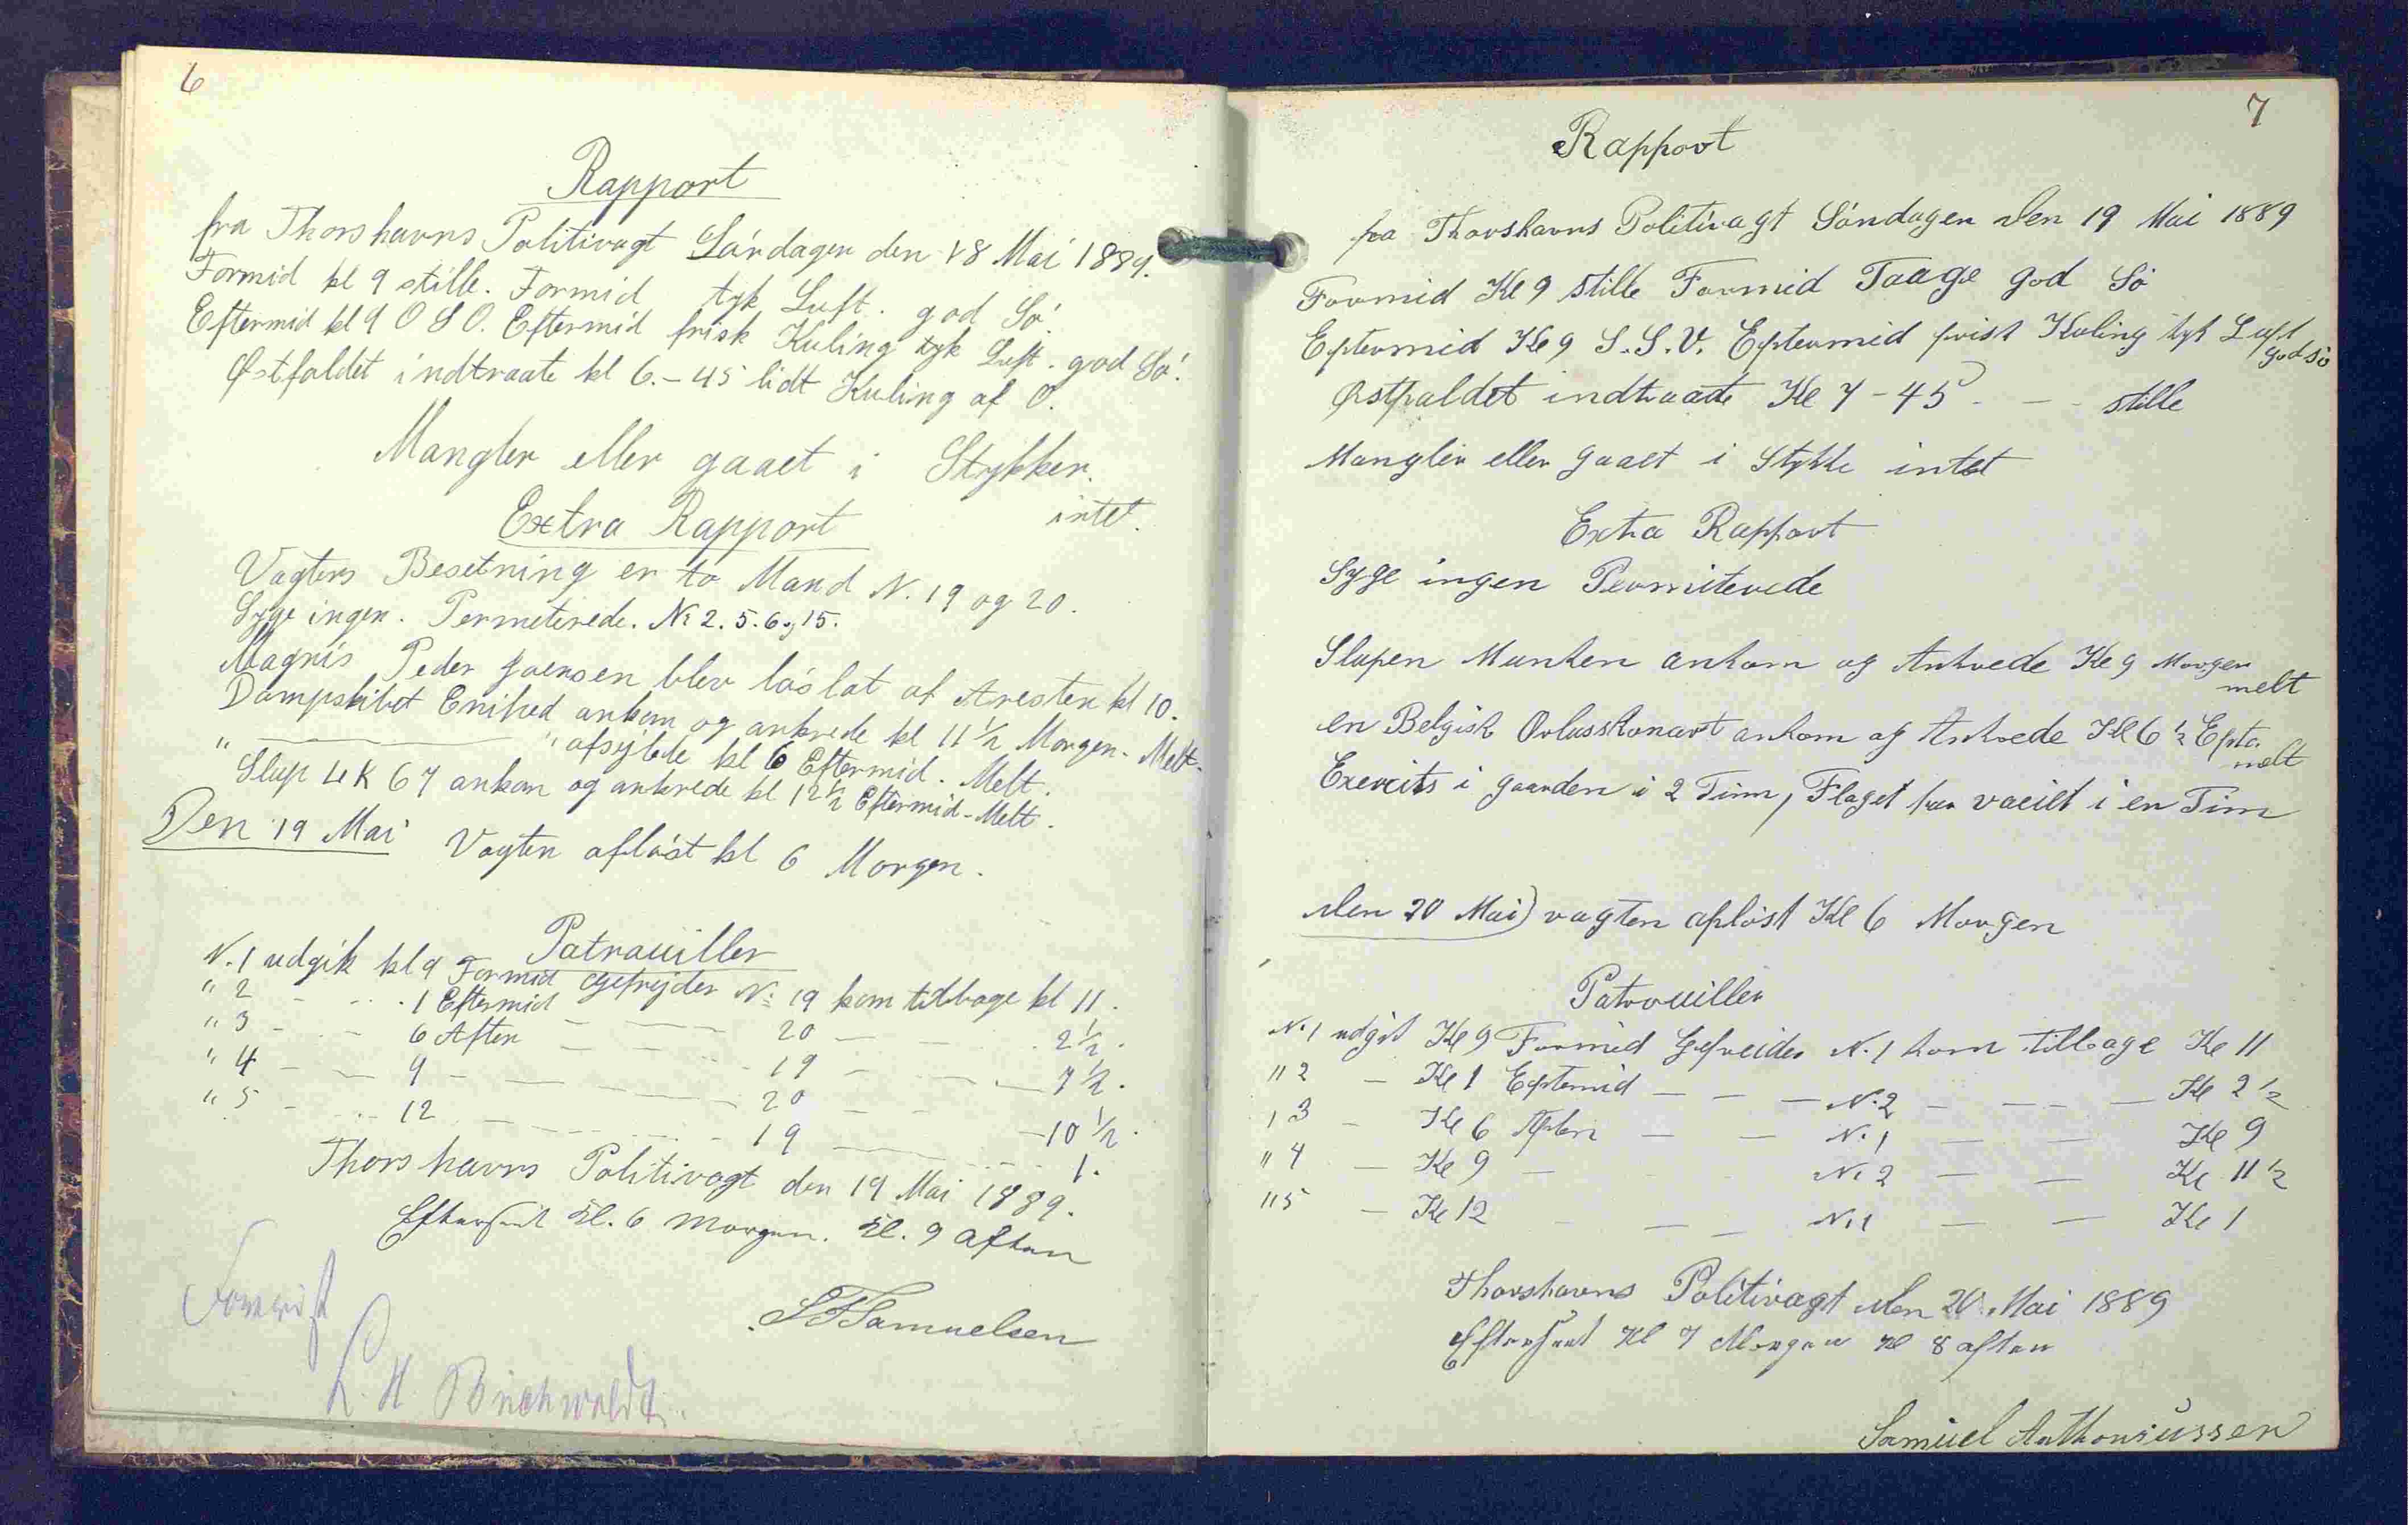 6
Rapport
fra Thorshavns Politivagt Lördagen den 18 Mai 1889.
Formid kl 9 stille. Formid tyk Luft. god Sö.
Eftermid kl 9 O S O. Eftermid frisk Kuling tyk Luft. god Sö.
Østfaldet indtraate kl 6.-45 lidt Kuling af O.
Mangler eller gaaet i Stykker.
intet.
Extra Rapport
Vagters Besetning er to Mand N. 19 og 20.
Syge ingen. Permeterede. No 2. 5. 6 og 15.
Magnus Peder Joensen blev löslat af Aresten kl 10.
Dampskibet Enihed ankom og ankrede kl 11 1/2 Morgen. Melt.
" — " afsejlede kl 6 Eftermid. Melt.
Slup LK 67 ankom og ankrede kl 12 1/2 Eftermid - Melt.
Den 19 Mai Vagten aflöst kl 6 Morgen.
Patrouiller
N. 1 udgik kl 9 Formid Gefrejder No 19 kom tilbage kl 11.
" 2 - - 1 Eftermid — — 20 — — 2 1/2.
" 3 - - 6 Aften — — 19 — — 7 1/2.
" 4 - - 9 - — — 20 — — 10 1/2.
" 5 - - 12 — — 19 — — 1.
Thorshavns Politivagt den 19 Mai 1889.
Eftersent Kl. 6 Morgen. Kl. 9 Aften
SFSamuelsen
L. H Buchwaldt.
7
Rapport
fra Thorshavns Politivagt Söndagen den 19 Mai 1889
Formid Kl 9 stille Formid Taage god Sö
Eftermid Kl 9 S.S.V. Eftermid frisk Kuling tyk Luft
god sö
Østfaldet indtraate Kl 7-45 - — - stille
Mangler eller gaaet i Stykke intet
Extra Rapport
Syge ingen Permiterede
Slupen Munken ankom og Ankrede Kl 9 Morgen
melt
en Belgisk Orlusskonart ankom og Ankrede Kl 6 1/2 Efter
melt
Exercits i gaarden i 2 Tim, Flaget har vaeilt i en Tim
den 20 Mai) vagten aflöst Kl 6 Morgen
Patrouiller
N. 1 udgik Kl 9 Formid Gefreider N. 1 kom tilbage Kl 11
" 2 — Kl 1 Eftemid — — — N. 2 — — — Kl 2 1/2
, 3 — Kl 6 Aften — — N. 1 — — Kl 9
" 4 — Kl 9 — N. 2 — — Kl 11 1/2
" 5 — Kl 12 — — N. 1 — — Kl 1
Thorshavns Politivagt den 20 Mai 1889
Eftersent Kl 7 Morgen Kl 8 aften
Samuel Anthoniussen